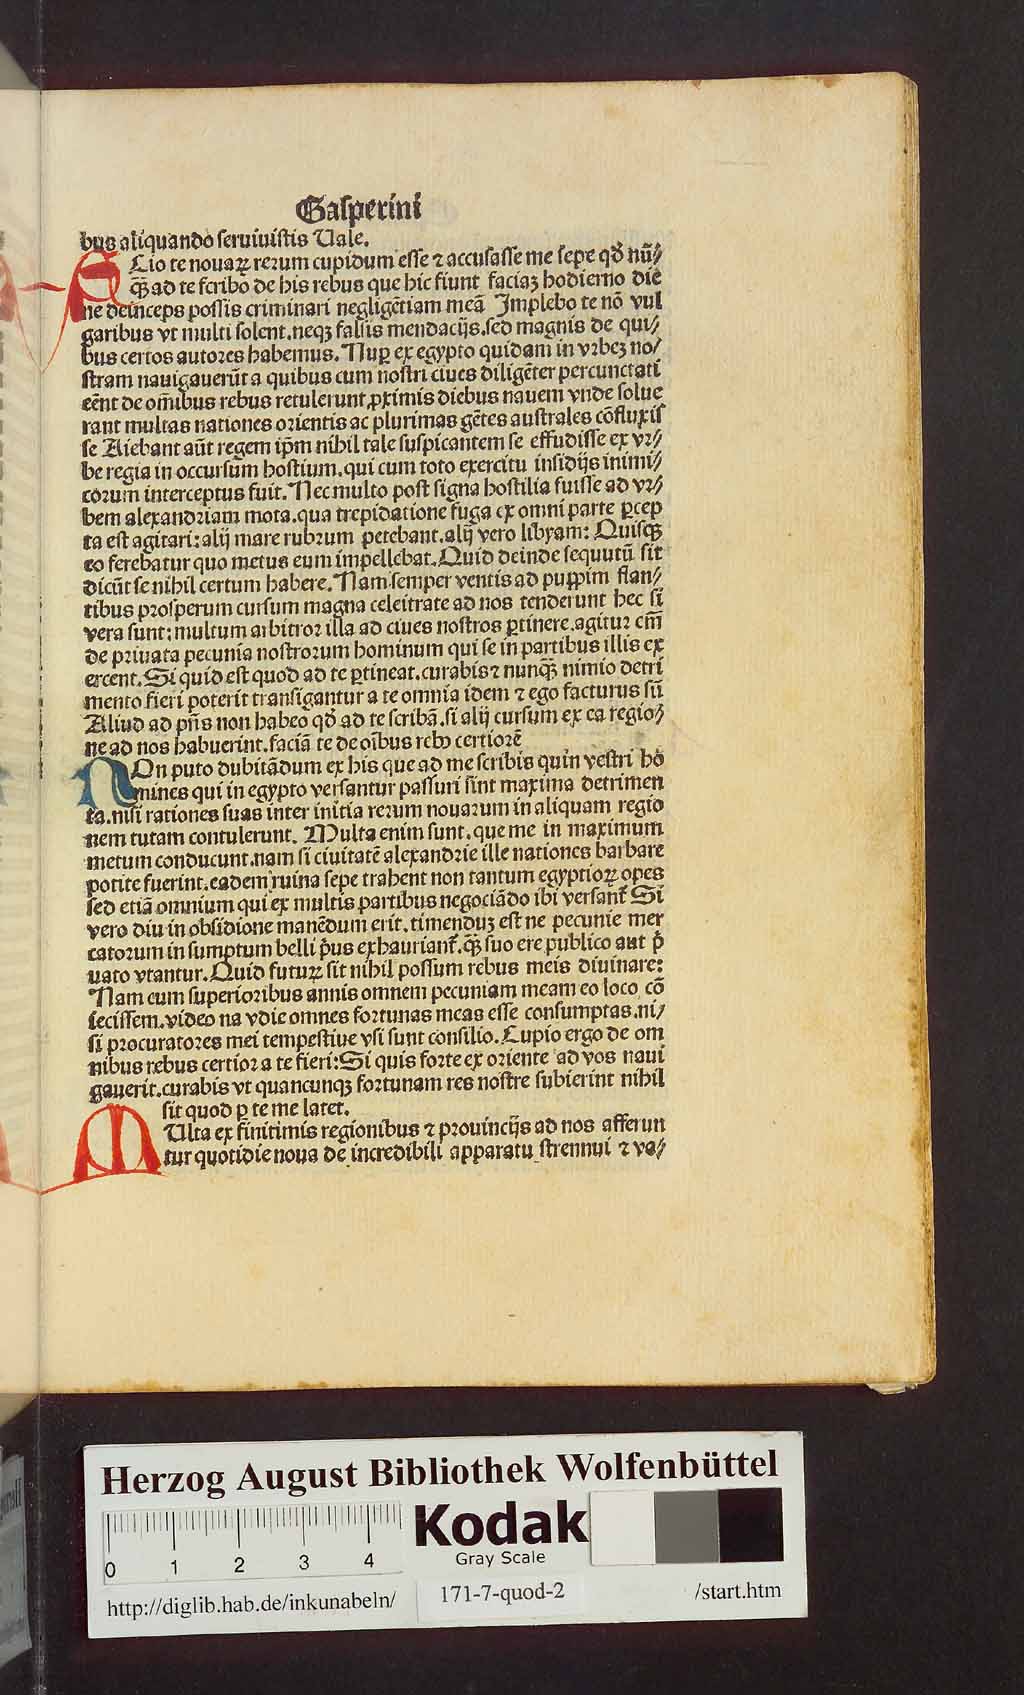 Gasperini
bus aliquando seruiuistis Uale.
SCio te nouaꝝ rerum cupidum esse ⁊ accusasse me sepe qð nū⸗
q̃ꝫ ad te scribo de his rebus que hic fiunt faciaꝫ hodierno die
ne deinceps possis criminari negligētiam meā Implebo te nō vul
garibus vt multi solent.neqꝫ falsis mendacijs.sed magnis de qui⸗
bus certos autores habemus. Nuꝑ ex egypto quidam in vrbeꝫ no⸗
stram nauigauerūt a quibus cum nostri ciues diligēter percunctati
eēnt de om̄ibus rebus retulerunt ꝓximis diebus nauem vnde solue
rant multas nationes orientis ac plurimas gētes australes cōfluxis
se Aiebant aūt regem ip̄m nihil tale suspicantem se effudisse ex vr⸗
be regia in occursum hostium.qui cum toto exercitu insidijs inimi⸗
corum interceptus fuit. Nec multo post signa hostilia fuisse ad vr⸗
bem alexandriam mota.qua trepidatione fuga ex omni parte ꝑcep
ta est agitari: alij mare rubrum petebant.alij vero libyam: Quisqꝫ
eo ferebatur quo metus eum impellebat. Quid deinde sequutū sit
dicūt se nihil certum habere. Nam semper ventis ad puppim flan⸗
tibus prosperum cursum magna celeitrate ad nos tenderunt hec si
vera sunt: multum arbitror illa ad ciues nostros ꝑtinere.agitur em̄
de priuata pecunia nostrorum hominum qui se in partibus illis ex
ercent. Si quid est quod ad te ꝑtineat.curabis ⁊ nunq̃ꝫ nimio detri
mento fieri poterit transigantur a te omnia idem ⁊ ego facturus sū
Aliud ad pn̄s non habeo qð ad te scribā.si alij cursum ex ea regio⸗
ne ad nos habuerint.faciā te de oībus rebꝰ certiorē
NOn puto dubitādum ex his que ad me scribis quin vestri ho
mines qui in egypto versantur passuri sint maxima detrimen
ta.nisi rationes suas inter initia rerum nouarum in aliquam regio
nem tutam contulerunt. Multa enim sunt.que me in maximum
metum conducunt.nam si ciuitatē alexandrie ille nationes barbare
potite fuerint.eadem ruina sepe trahent non tantum egyptioꝝ opes
sed etiā omnium qui ex multis partibus negociādo ibi versant̃ Si
vero diu in obsidione manēdum erit.timenduꝫ est ne pecunie mer
catorum in sumptum belli p̄us exhauriant̃.q̃ꝫ suo ere publico aut p̄
uato vtantur. Quid futuꝝ sit nihil possum rebus meis diuinare:
Nam cum superioribus annis omnem pecuniam meam eo loco cō
iecissem.video na vdie omnes fortunas meas esse consumptas.ni⸗
si procuratores mei tempestiue vsi sunt consilio. Cupio ergo de om
nibus rebus certior a te fieri: Si quis forte ex oriente ad vos naui
gauerit.curabis vt quancunqꝫ fortunam res nostre subierint nihil
sit quod ꝑ te me latet.
MUlta ex finitimis regionibus ⁊ prouincijs ad nos afferun
tur quotidie noua de incredibili apparatu strennui ⁊ va⸗
Herzog August Bibliothek Wolfenbüttel
Kodak
Gray Scale
0 1 2 3 4
http://diglib.hab.de/inkunabeln/ 171-7-quod-2 /start.htm